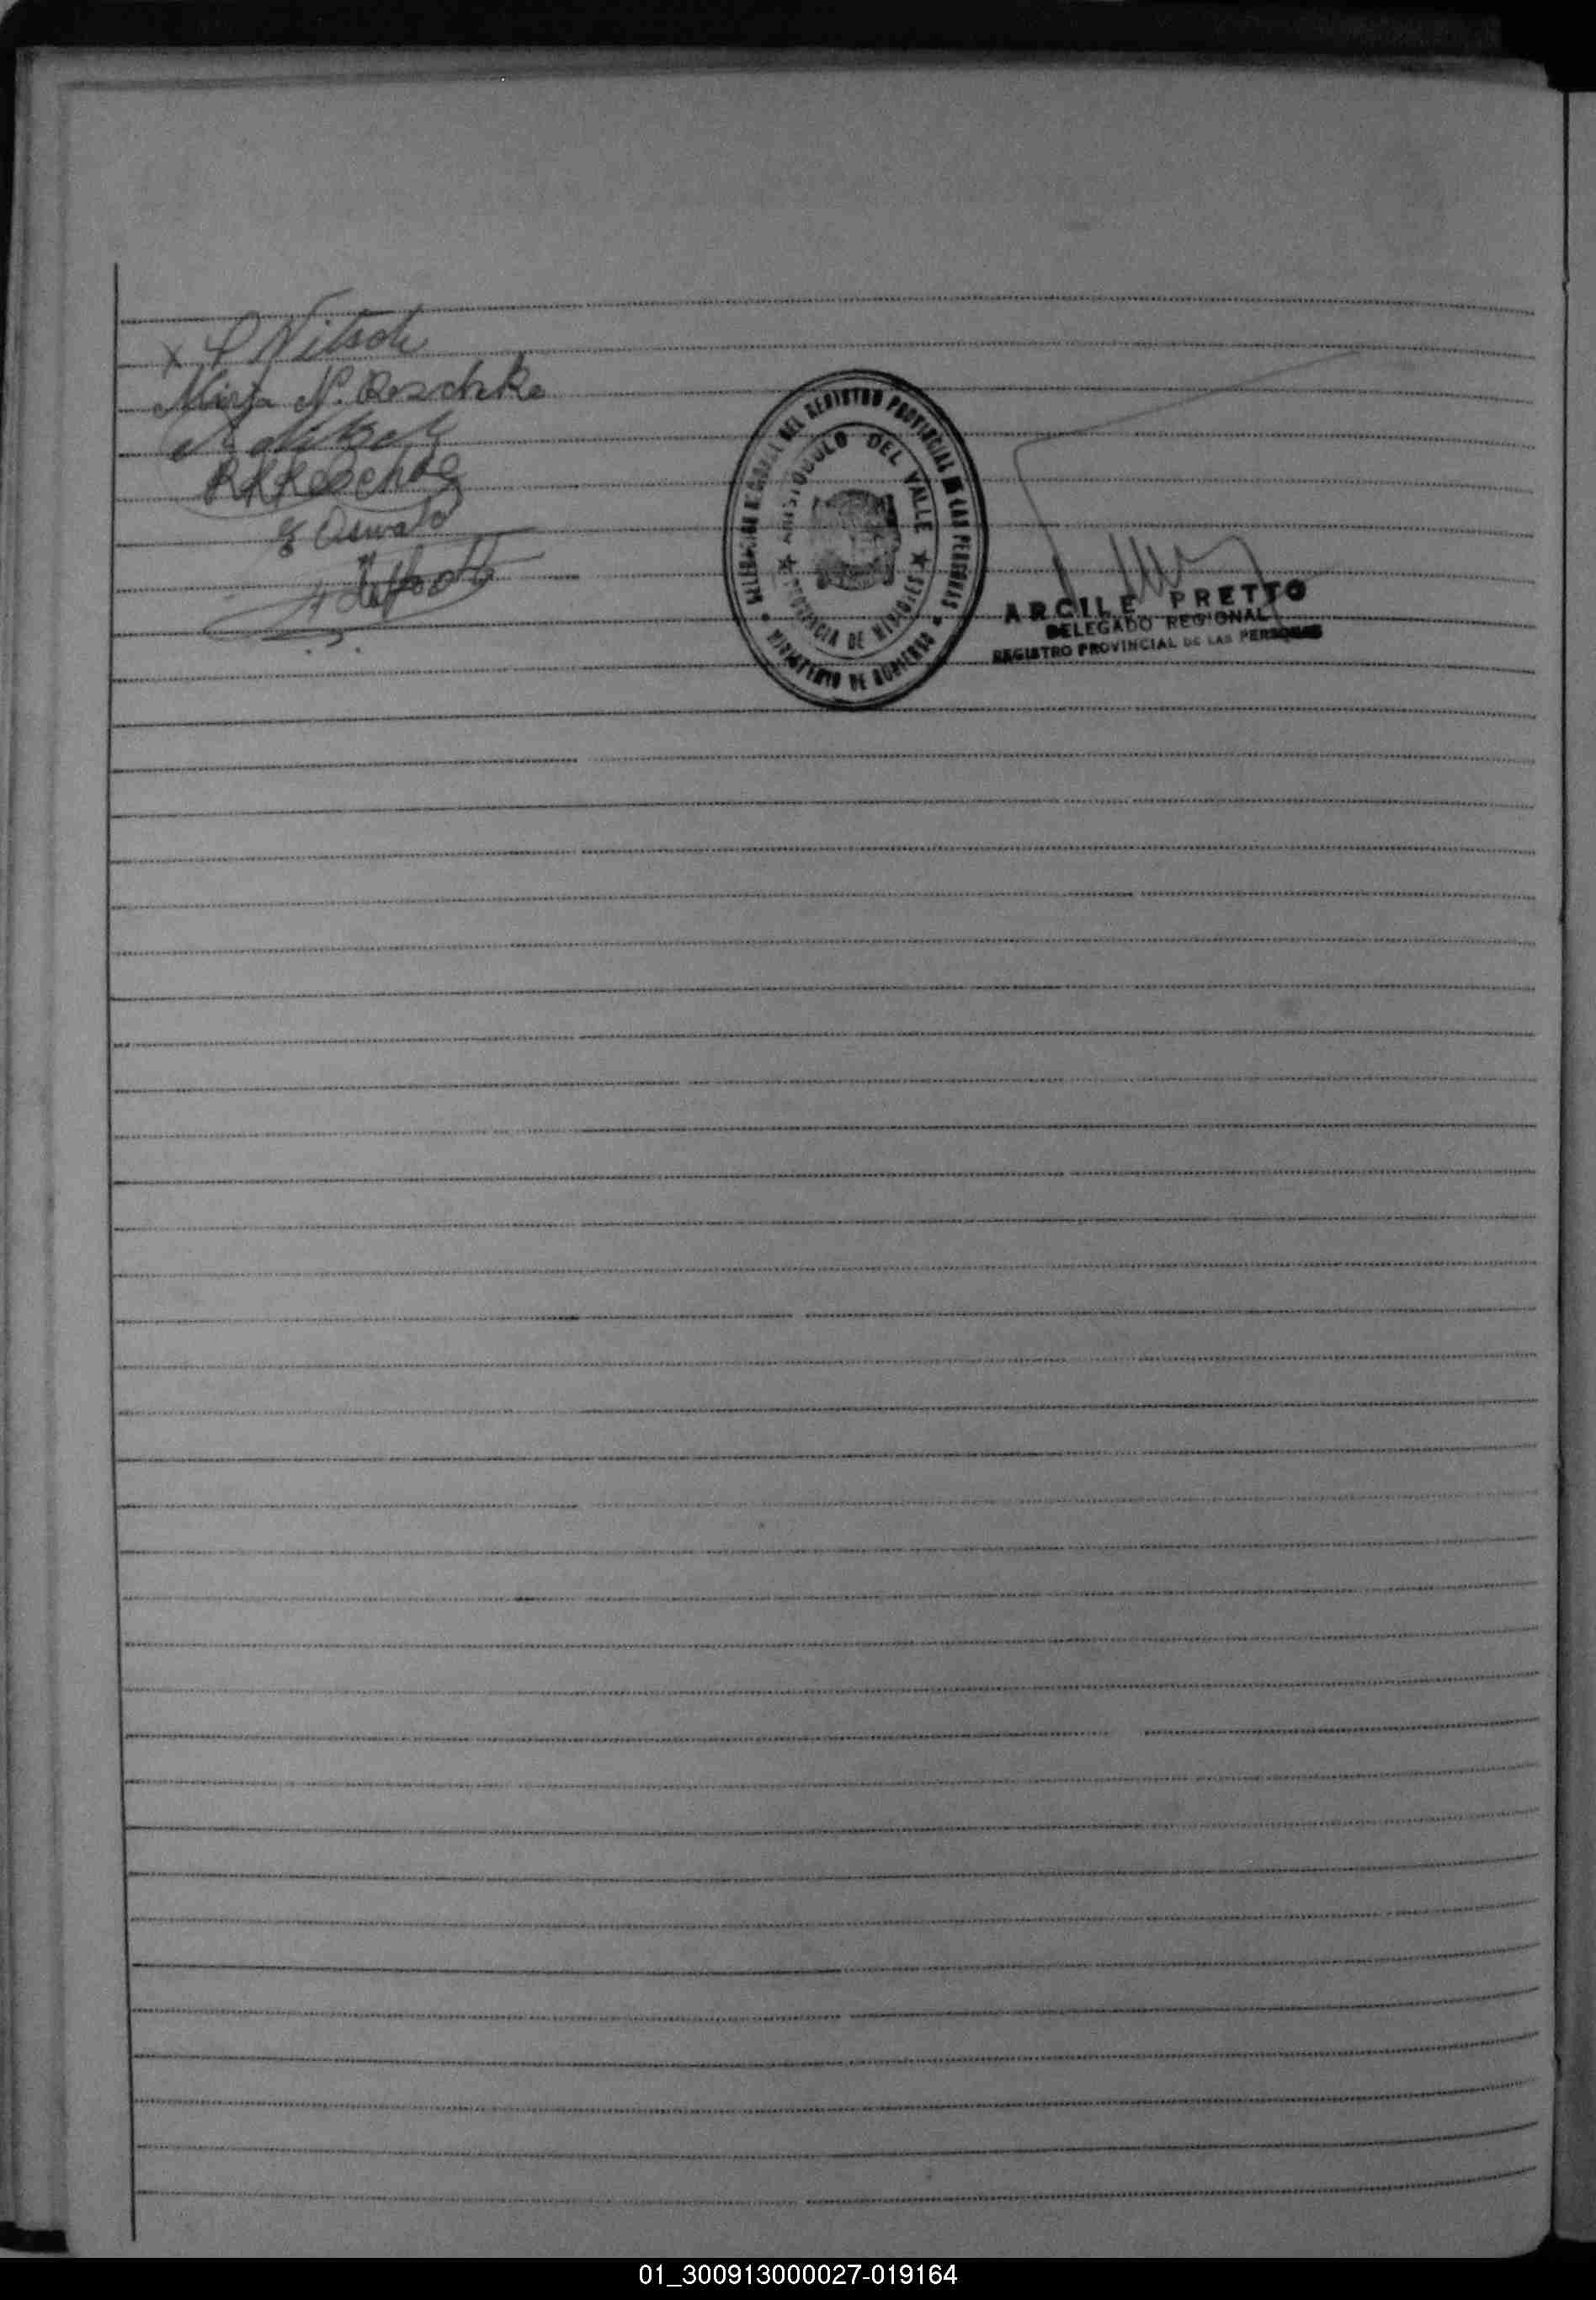 x P Nitsch
Mirta N. Reschke
R K Reschke
E Oswald
DELEGACION DEL REGISTRO PROVINCIAL DE LAS PERSONAS
MINISTERIO DE GOBIERNO
ARISTOBULO DEL VALLE
PROVINCIA DE MISIONES
ARCILE PRETTO
DELEGADO REGIONAL
REGISTRO PROVINCIAL DE LAS PERSONAS
01_300913000027-019164